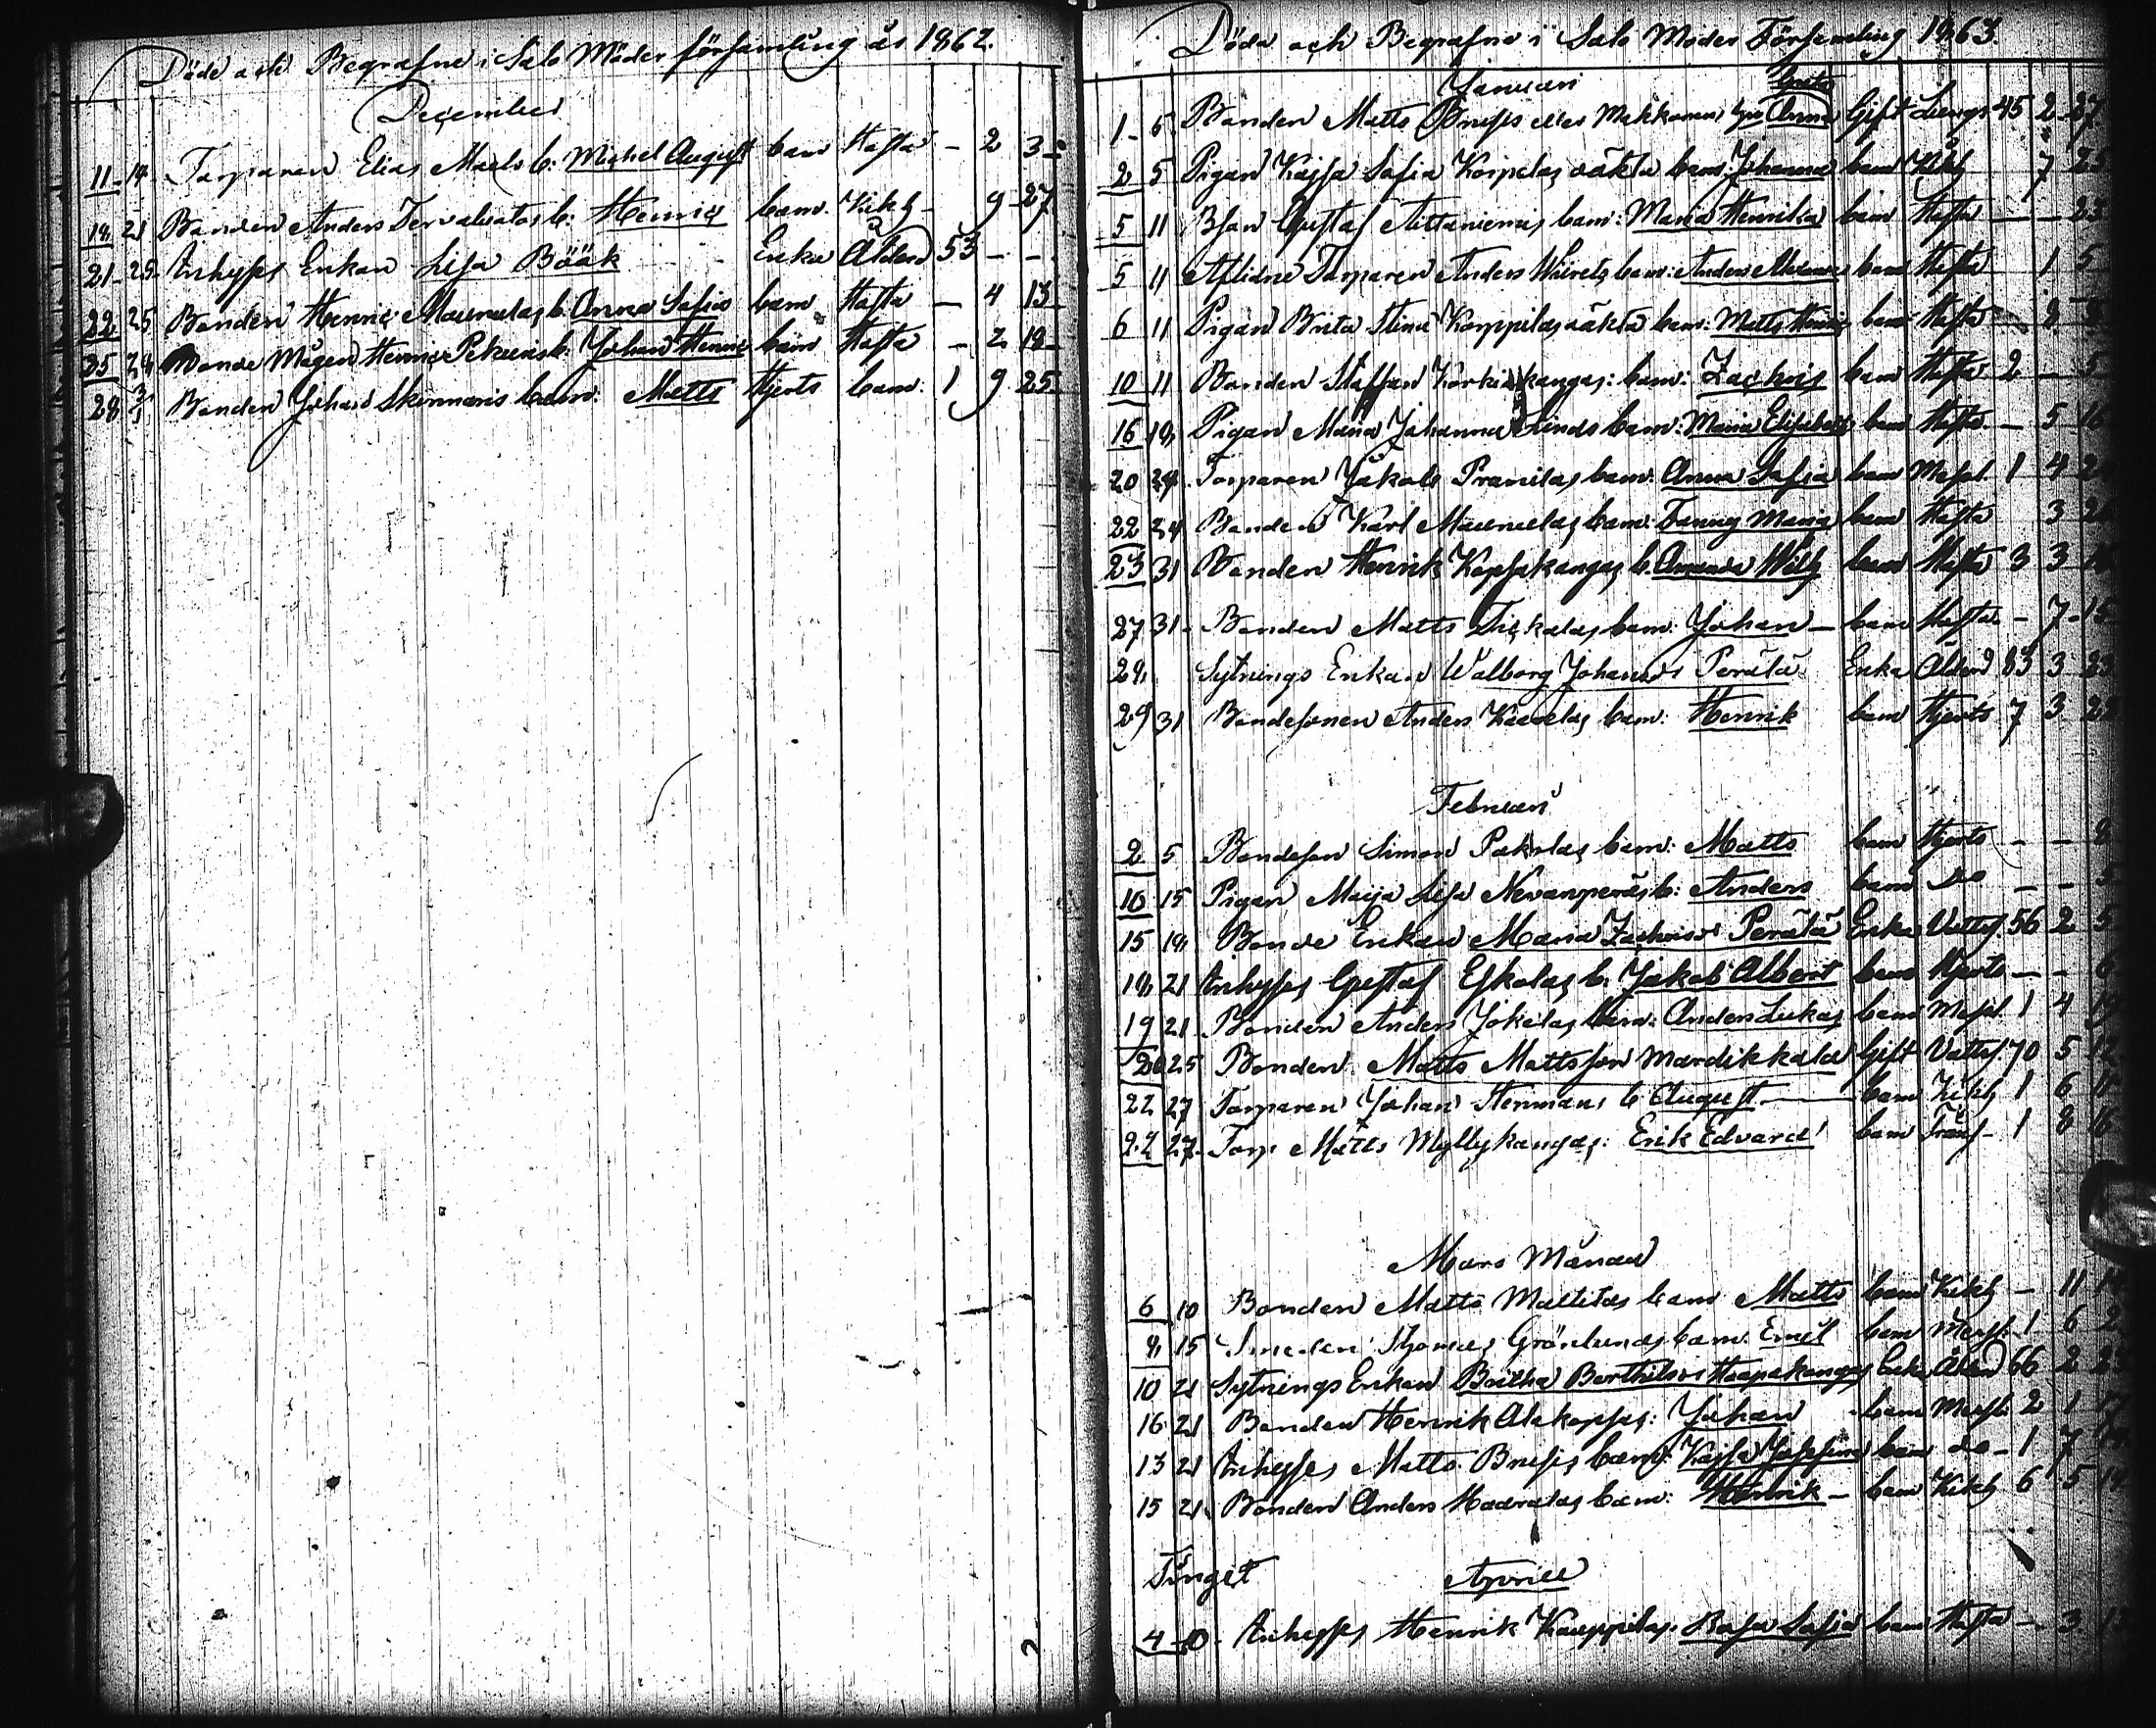 Döde och Begrafne i Salo Moder församling år 1862.
December
11 - 14 - Torparen Elias Maels b: Michel August barn Hosta - 2 3 -
18 21 Bonden Anders Tervaluotos b: Henric barn Kikh - 9 27
21 - 25 - Inhyses Enkan Lisa Böök Enka Ålderd 53 - -
22 25 Bonden Henric Maunulas b. Anna Sofia barn Hosta - 4 13
25 28 Bonde Mågen Henric Pekuris b. Johan Henric barn Hosta - 2 18 -
28 Bonden Johan Skinnaris barn: Matts Hjerts barn: 1 9 25
Döda och Begrafne i Salo Moder Församling 1863.
Januari
1 - 6 Bonden Matts Anna Gift Lungs 45 2 27
2 5 Pigan Kajsa Sofia Korpelas oäkta barn: Johanna barn Kikh 7 25
5 11 Bson Gustaf Aittaniemis barn: Maria Henrika barn Hosta - - 23
5 11 Aflidne Torparen Anders barn: barn Hosta 1 5
6 11 Pigan Brita Stina Korppilas oäkta barn: Matts Henric barn Hosta - 8
10 11 Bonden Staffan barn: Zachris barn Hosta 2 - 5
16 18 Pigan Maria Johanna Linds barn: Maria Elisabeth barn Hosta - 5 16
20 24 Torparen Jakob Pranilas barn: Anna Sofia barn Messl. 1 4
22 24 Bonden Karl Maunulas barn: Fanny Maria barn Hosta 3
23 31 Bonden Henrik Kopsakangas b. Amanda Wilh barn Hosta 3 3
27 31 - Bonden Matts barn: Johan - barn Hosta - 7 - 15
28 Sytnings Enkan Walborg Johansd: Perälä Enka Ålderd 83 3 23
29 31 Bondesonen Anders barn: Henrik barn Hjerts 7 3
Februari
2 5 Bondeson Simon Pakolas barn: Matts barn Hjerts - - 8
10 15 Pigan Maija Lisa Nevanperäs b: Anders barn do - -
15 18 Bonde Enkan Maria Zachrisd: Perälä Enka Vattus. 56 2 5
18 21 Inhyses Gustaf Eskolas b. Jakob Albert barn Hjerts - - 6
19 21 Bonden Anders Jokelas barn: Anders Lukas barn Messl. 1 4
20 25 Bonden Matts Mattsson Mardikkala Gift Vattus. 70 5 12
22 27 Torparen Johan Hermans b August barn Kikh 1 6
22 27 - Torp Matts Myllykangas: Erik Edvard barn - 1 8 16
Mars Månad
6 10 Bonden Matts Mattilas barn Matts barn Kikh - 11
8 15 Smeden Thomas Grönlunds barn: Emil barn Messl. 1 6 2
10 21 Sytnings Enkan Britha Berthilsd: Haapakangas Enka Ålderd 66 2
16 21 Bonden Henrik Alakopsas: Johan barn Messl. 2 1
13 21 Inhyses Matts barn: Kajsa Josefina barn do - 1 7
15 21 Bonden Anders barn: Henrik - barn Kikh 6 5 14
Tinget
April
4 - 10 - Inhyses Henrik Kauppilas. Sofia barn Hosta - 3